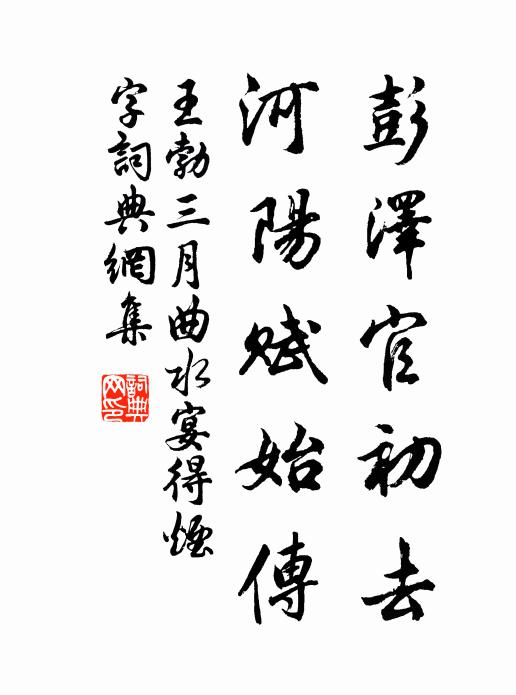 彭澤官初去
河陽賦始傳
王勃三月曲水宴得煙
字詞典網集
詞典網印